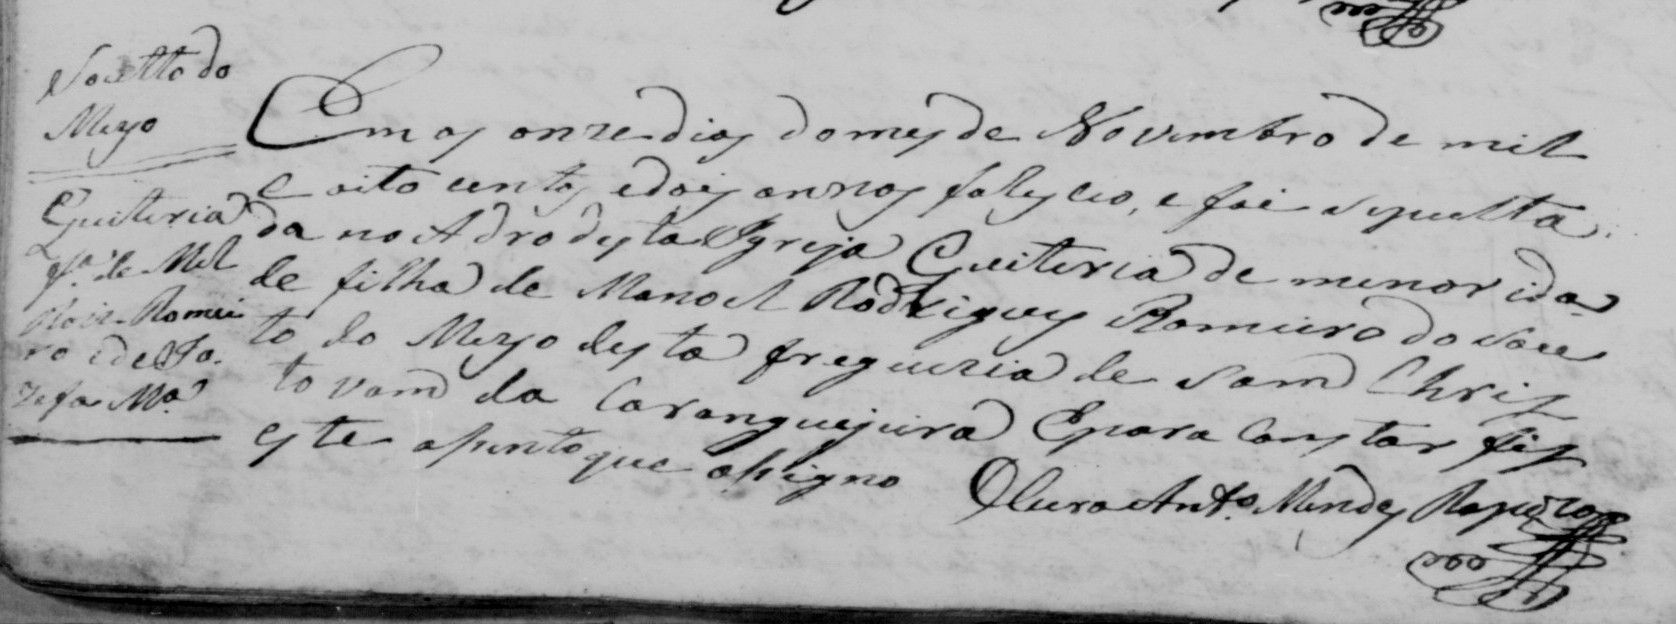 Soutto do
Meyo
Quiteria
fª. de Mel
Roiz Romei
ro e de Jo
zefa Mª.
Em os onze dias do mes de Novembro de mil
e oito centos e dois annos falesceo, e foi sepulta
da no Adro desta Igreja Quiteria de menor ida
de filha de Manoel Rodrigues Romeiro do Sou
to do Meyo desta freguezia de Sam Chris
tovam da Caranguejeira E para constar fis
este asento que asigno
O Cura Antº. Mendes Rapozo